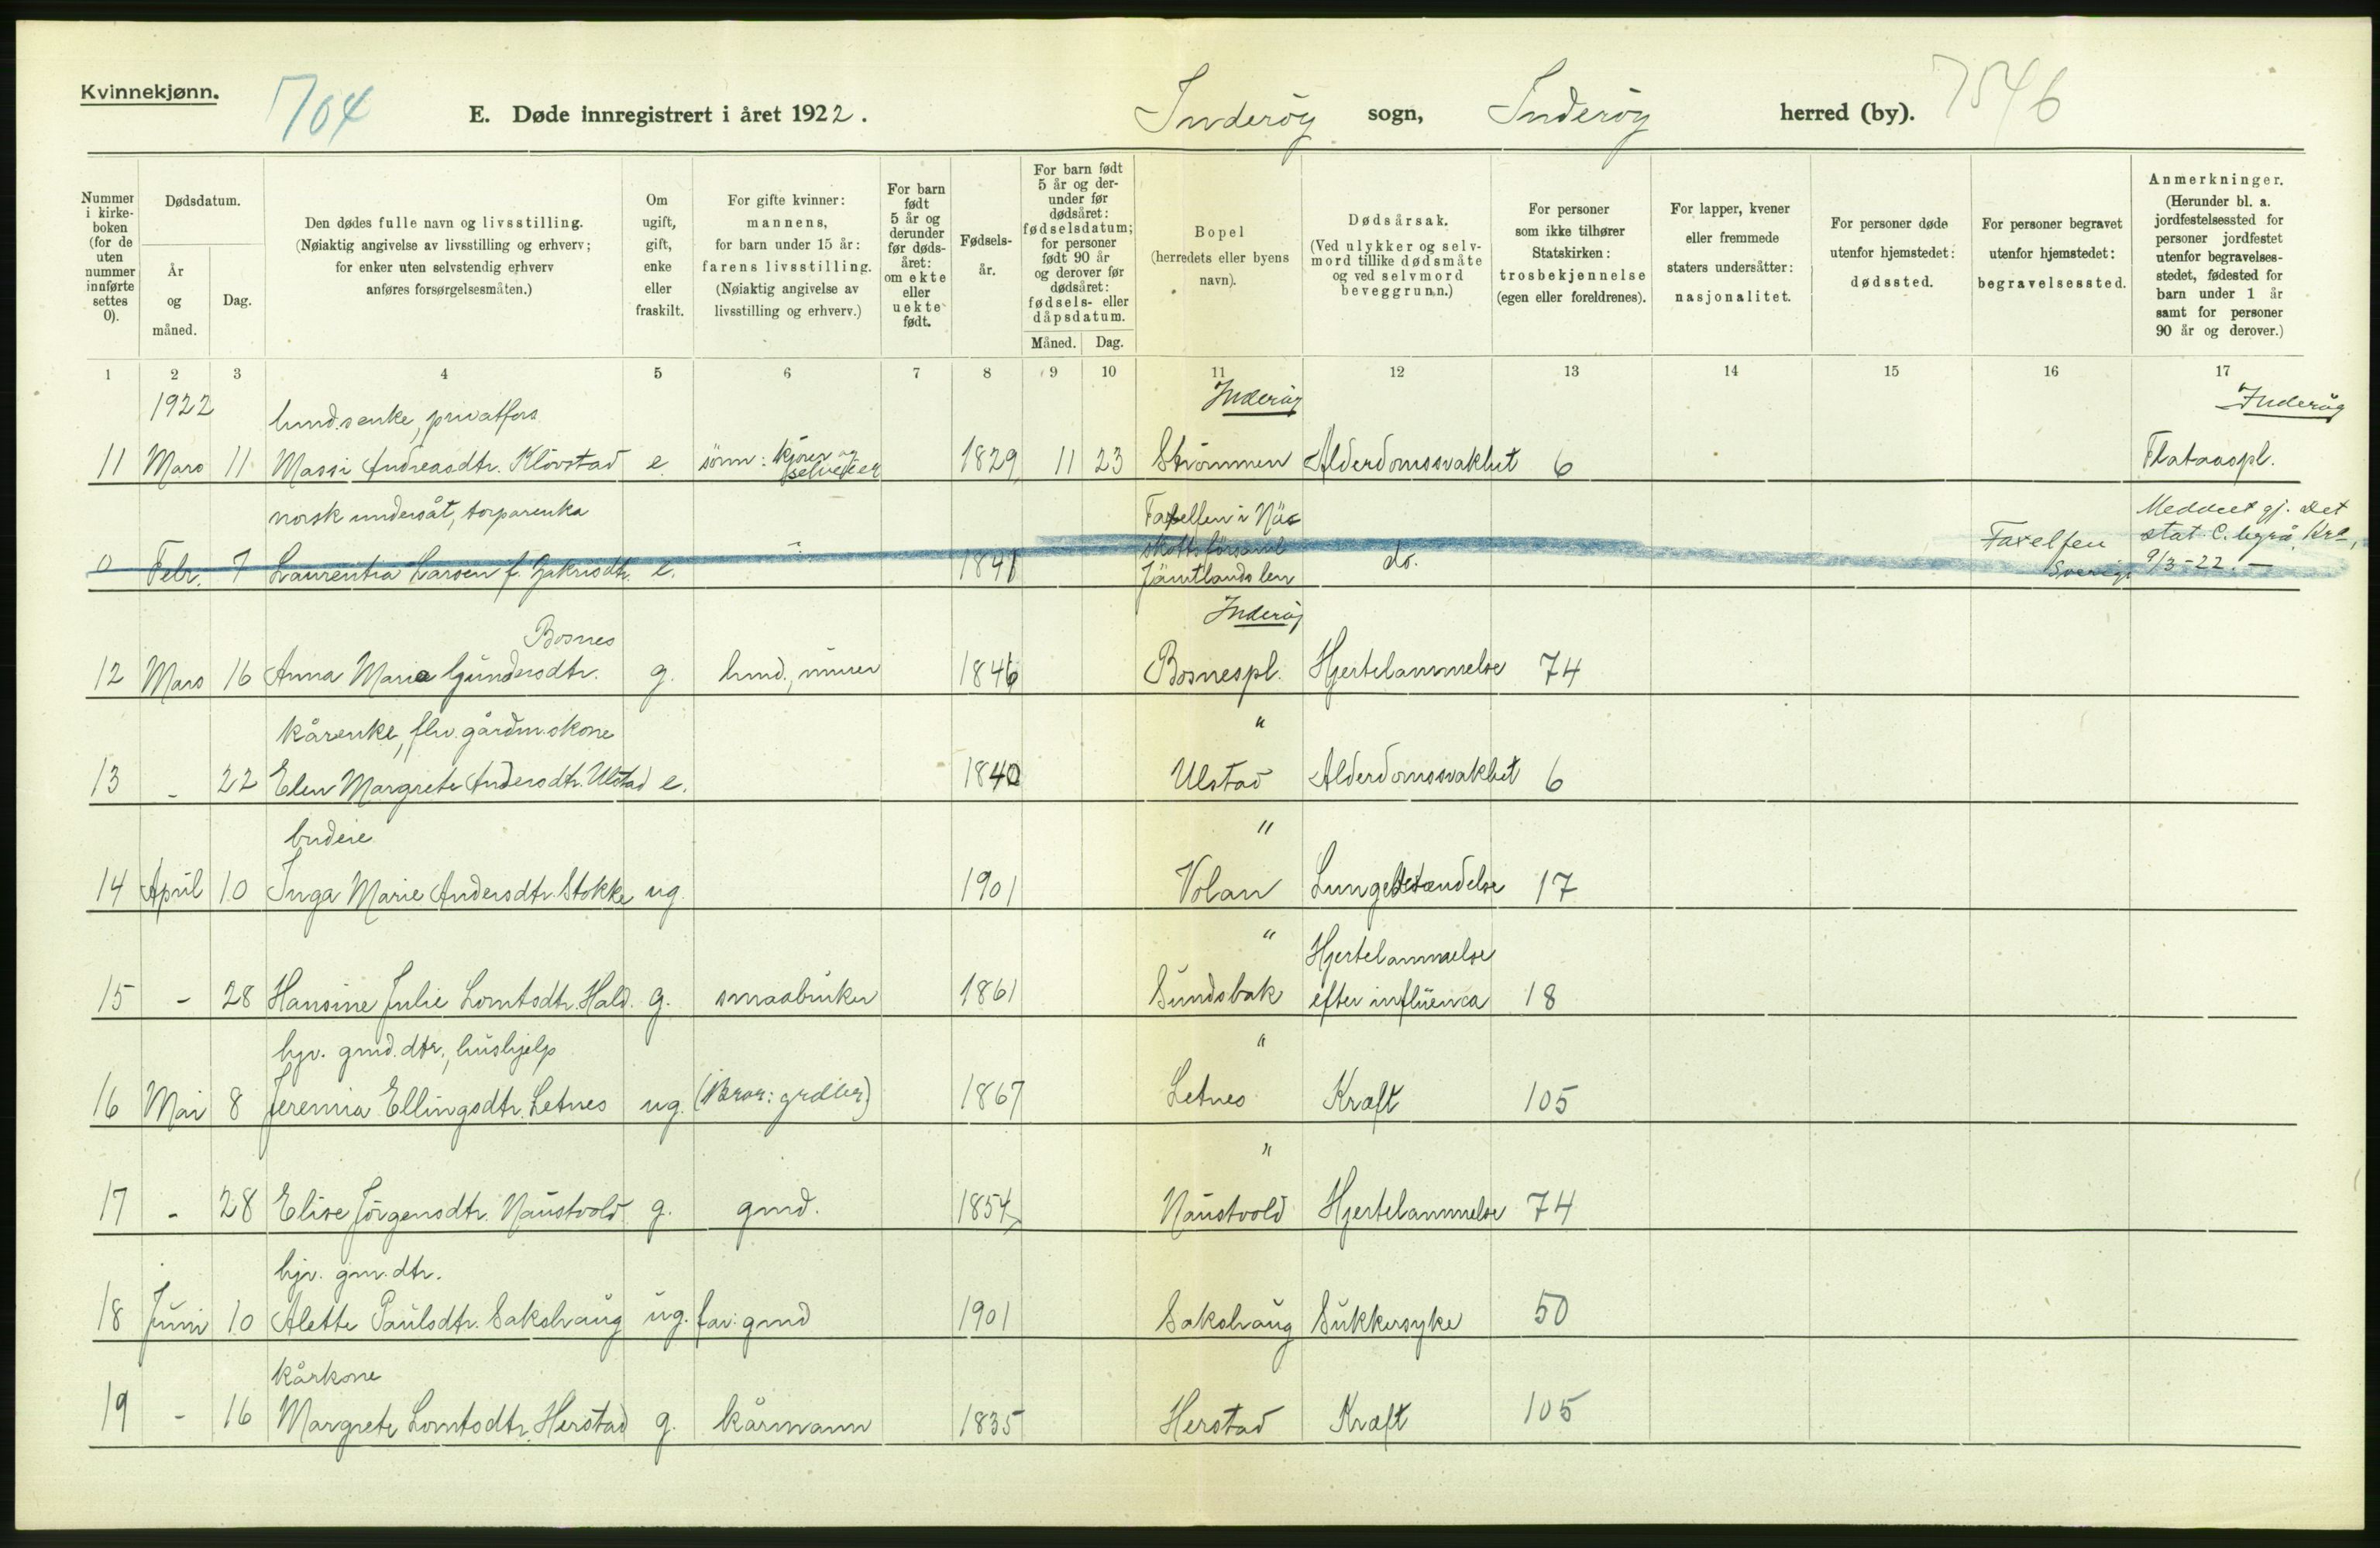 Kvinnekjønn.
704
E. Døde innregistrert i året 1922.
Inderöy sogn, Inderöy herred (by).
7546
Nummer i kirke-boken (for de uten nummer innførte settes 0).
Dødsdatum.
År og måned.
Dag.
Den dødes fulle navn og livsstilling. (Nøiaktig angivelse av livsstilling og erhverv; for enker uten selvstendig erhverv anføres forsørgelsesmåten.)
Om ugift, gift, enke eller fraskilt.
For gifte kvinner: mannens, for barn under 15 år: farens livsstilling. (Nøiaktig angivelse av livsstilling og erhverv.)
For barn født 5 år og derunder før døds-året: om ekte eller uekte født.
Fødsels-år.
For barn født 5 år og der-under før dødsåret: fødselsdatum; for personer født 90 år og derover før dødsåret: fødsels- eller dåpsdatum.
Måned. Dag.
Bopel (herredets eller byens navn).
Dødsårsak. (Ved ulykker og selv-mord tillike dødsmåte og ved selvmord beveggrunn.)
For personer som ikke tilhører Statskirken: trosbekjennelse (egen eller foreldrenes).
For lapper, kvener eller fremmede staters undersåtter: nasjonalitet.
For personer døde utenfor hjemstedet: dødssted.
For personer begravet utenfor hjemstedet: begravelsessted.
Anmerkninger. (Herunder bl. a. jordfestelsessted for personer jordfestet utenfor begravelses-stedet, fødested for barn under 1 år samt for personer 90 år og derover.)
1 2 3 4 5 6 7 8 9 10 11 12 13 14 15 16 17
1922 Inderöy Inderöy
hmd.s enke, privatfors
11 Mars 11 Massi Andreasdtr. Klövstad e. sönn: kjörer og selveier 1829 11 23 Strömmen Alderdomssvakhet 6 Flataaspl.
norsk undersåt, torparenka
0 Febr. 7 Laurentia Larsen f. e. 1841 Faxelfen i Näs skotts församl Jämtlands len do. Faxelfen Sverige Meddeet gj. det stat. C. byrå, Kra, 9/3-22. -
Bosnes Inderöy
12 Mars 16 Anna Maria Gundersdtr. g. hmd., murer 1846 Bosnespl. Hjertelammelse 74
kårenke, fhv. gårdm.skone "
13 - 22 Elen Margrete Andersdtr. Ulstad e. 1840 Ulstad Alderdomssvakhet 6
budeie "
14 April 10 Inga Marie Andersdtr. Stokke ug. 1901 Volan Lungebetændelse 17
" Hjertelammelse
15 - 28 Hansine Julie Lorntsdtr. Hald. g. smaabruker 1861 Sundsbak efter influenca 18
hjv. gmd. dtr., hushjelp "
16 Mai 8 Jeremia Ellingsdtr. Letnes ug. (Bror: grdbr) 1867 Letnes Kræft 105
"
17 - 28 Elise Jörgensdtr. Naustvold g. gmd. 1854 Naustvold Hjertelammelse 74
hjv. gm. dtr.
18 Juni 10 Alette Paulsdtr. Sakshaug ug. far: gmd 1901 Sakshaug Sukkersyke 50
kårkone
19 - 16 Margrete Lorntsdtr. Herstad g. kårmann 1835 Herstad Kræft 105